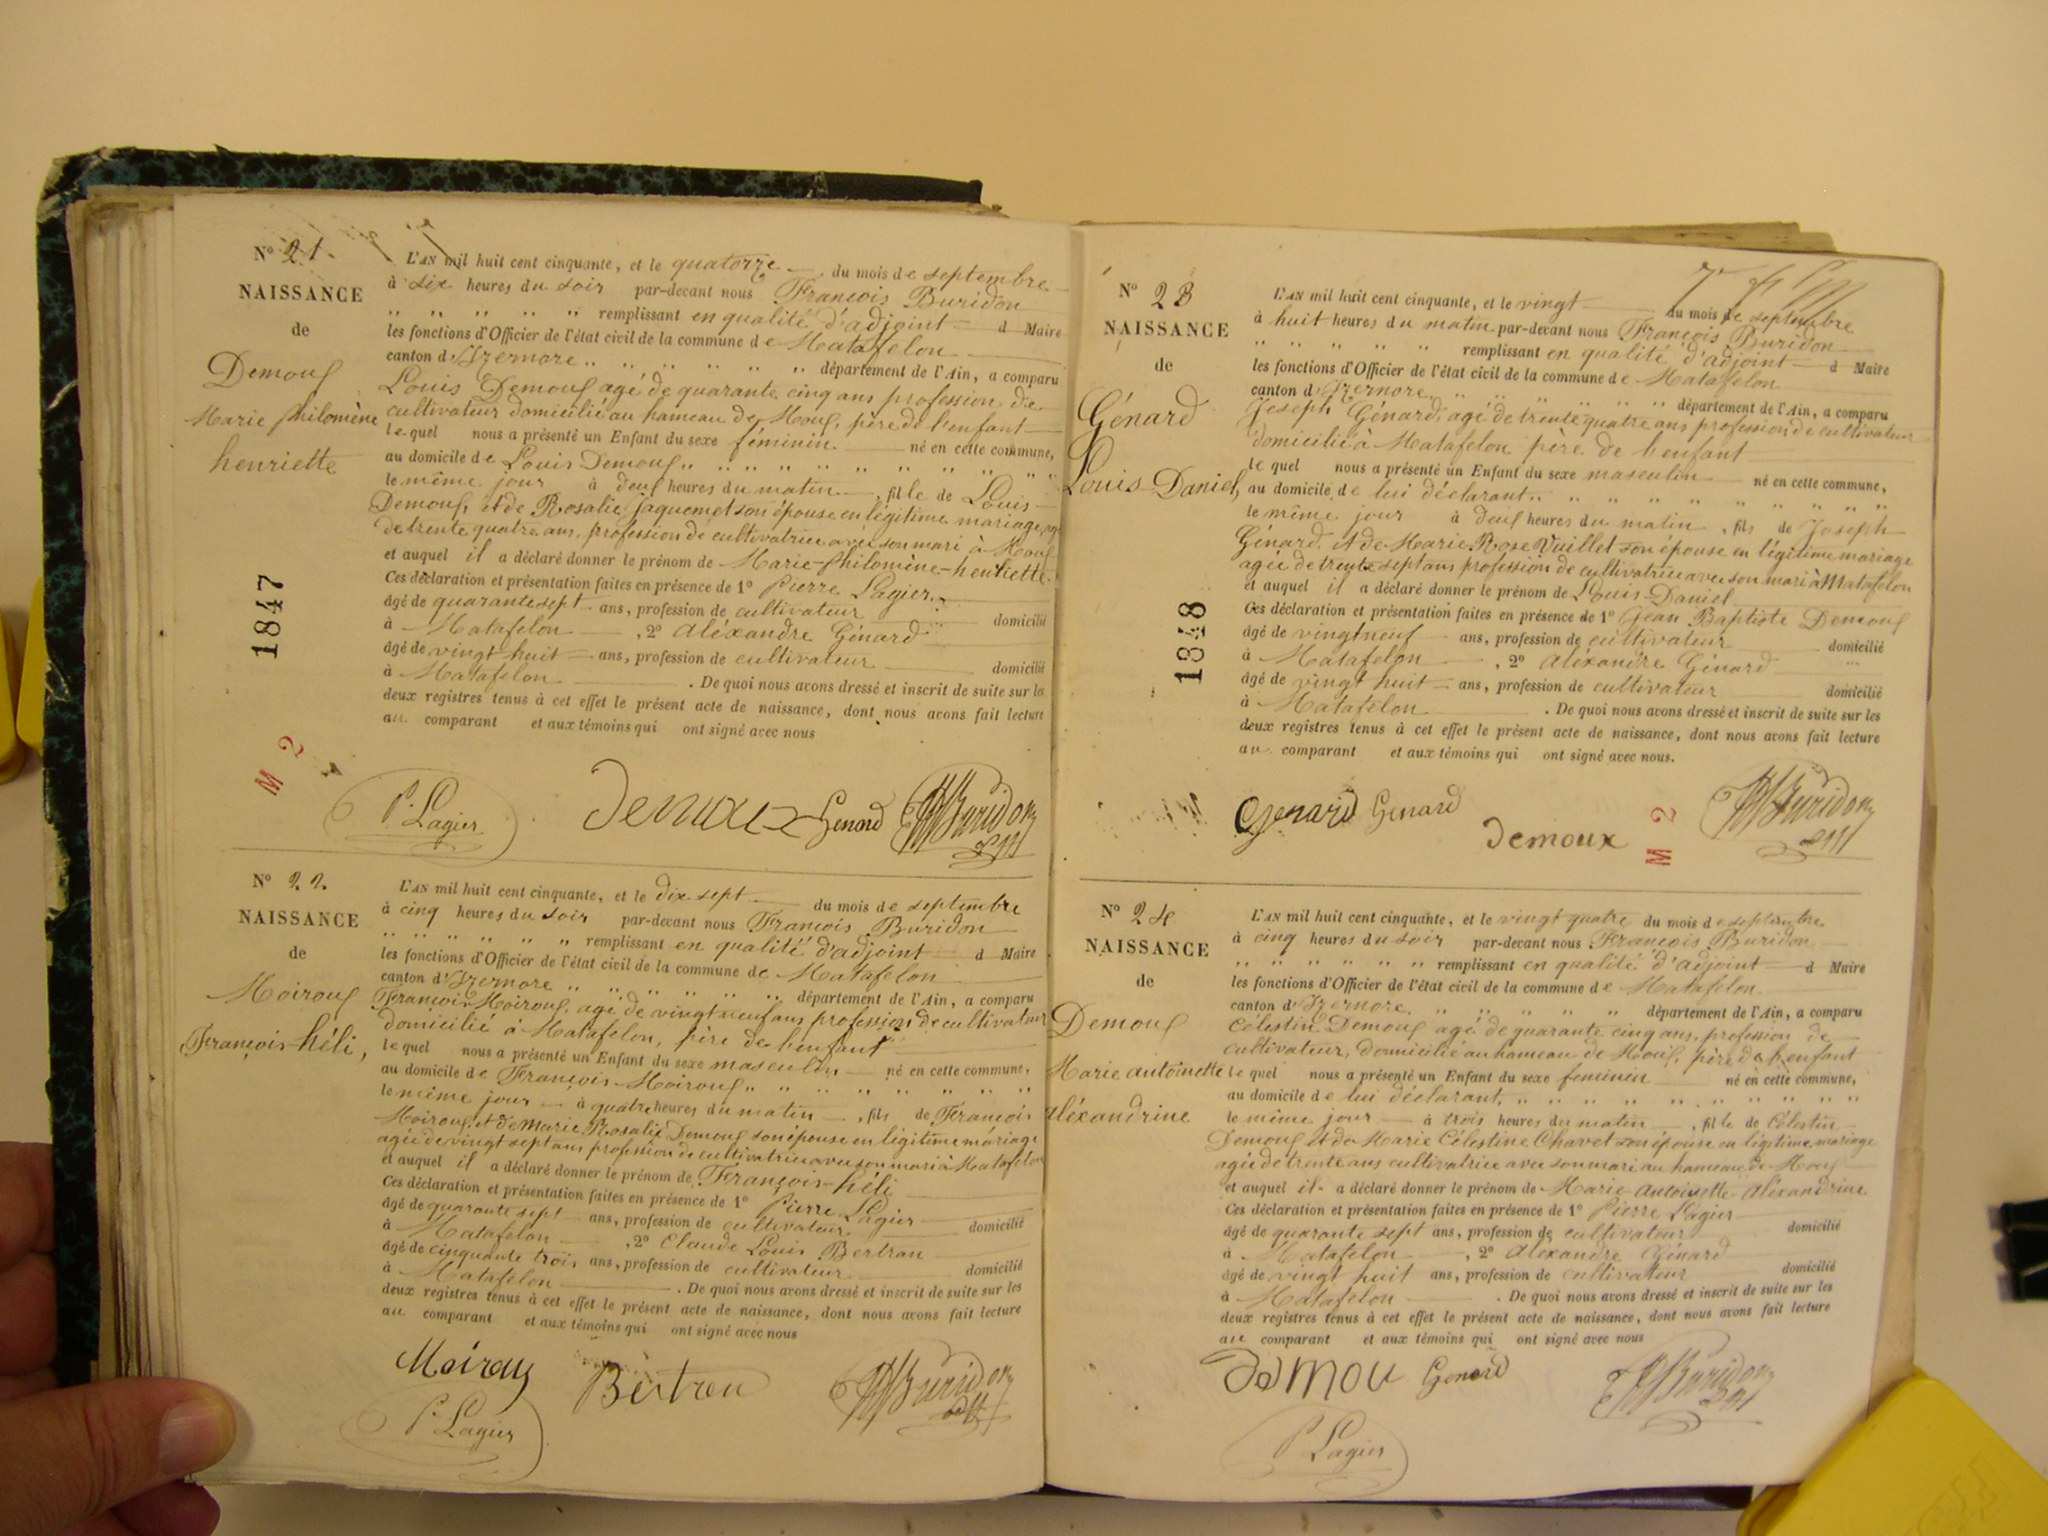 N° 21.
NAISSANCE
de
Demoux
Marie philomène
henriette
L'AN mil huit cent cinquante, et le quatorze du mois de septembre
à six heures du soir par-devant nous François Buridon
" " " " " remplissant en qualité d'adjoint d Maire
les fonctions d'Officier de l'état civil de la commune de Matafelon
canton d'Izernore " " " " " " département de l'Ain, a comparu
Louis Demoux agé de quarante cinq ans profession de
cultivateur domicilié au hameau de Moux, père de l'enfant
le quel nous a présenté un Enfant du sexe féminin né en cette commune,
au domicile de Louis Demoux " " " " " " " " " "
le même jour à deux heures du matin, fille de Louis
Demoux, et de Rosalie jaquemet son épouse en légitime mariage, agée
de trente quatre ans, profession de cultivatrice avec son mari à Moux
et auquel il a déclaré donner le prénom de Marie-philomène-henriette.
Ces déclaration et présentation faites en présence de 1° Pierre Lagier
âgé de quarante sept ans, profession de cultivateur domicilié
à Matafelon, 2° Aléxandre Génard
âgé de vingt huit ans, profession de cultivateur domicilié
à Matafelon. De quoi nous avons dressé et inscrit de suite sur les
deux registres tenus à cet effet le présent acte de naissance, dont nous avons fait lecture
au comparant et aux témoins qui ont signé avec nous
1847
M 2
P. Lagier Demoux Genard Buridon
N° 22.
NAISSANCE
de
Moiroux
François-héli,
L'AN mil huit cent cinquante, et le dix sept du mois de septembre
à cinq heures du soir par-devant nous François Buridon
" " " " " " remplissant en qualité d'adjoint d Maire
les fonctions d'Officier de l'état civil de la commune de Matafelon
canton d'Izernore " " " " " " département de l'Ain, a comparu
François Moiroux, agé de vingt neuf ans profession de cultivateur
domicilié à Matafelon, père de l'enfant
le quel nous a présenté un Enfant du sexe masculin né en cette commune,
au domicile de François Moiroux " " " " " " " " "
le même jour à quatre heures du matin, fils de François
Moiroux, et de Marie Rosalie Demoux son épouse en légitime mariage
agée de vingt sept ans profession de cultivatrice avec son mari à Matafelon
et auquel il a déclaré donner le prénom de François-héli
Ces déclaration et présentation faites en présence de 1° Pierre Lagier
âgé de quarante sept ans, profession de cultivateur domicilié
à Matafelon, 2° Claude Louis Bertran
âgé de cinquante trois ans, profession de cultivateur domicilié
à Matafelon. De quoi nous avons dressé et inscrit de suite sur les
deux registres tenus à cet effet le présent acte de naissance, dont nous avons fait lecture
au comparant et aux témoins qui ont signé avec nous
Moiroux Bertren Buridon
P. Lagier
N° 23
NAISSANCE
de
Génard
Louis-Daniel,
L'AN mil huit cent cinquante, et le vingt du mois de septembre
à huit heures du matin par-devant nous François Buridon
" " " " " remplissant en qualité d'adjoint d Maire
les fonctions d'Officier de l'état civil de la commune de Matafelon
canton d'Izernore " " " " " " département de l'Ain, a comparu
Joseph Génard, agé de trente quatre ans profession de cultivateur
domicilié à Matafelon père de l'enfant
le quel nous a présenté un Enfant du sexe masculin né en cette commune,
au domicile de lui déclarant " " " " " " " " "
le même jour à deux heures du matin, fils de Joseph
Génard, et de Marie Rose Vuillet son épouse en légitime mariage
agée de trente sept ans profession de cultivatrice avec son mari à Matafelon
et auquel il a déclaré donner le prénom de Louis-Daniel
Ces déclaration et présentation faites en présence de 1° Jean Baptiste Demoux
âgé de vingt neuf ans, profession de cultivateur domicilié
à Matafelon, 2° Aléxandre Génard
âgé de vingt huit ans, profession de cultivateur domicilié
à Matafelon. De quoi nous avons dressé et inscrit de suite sur les
deux registres tenus à cet effet le présent acte de naissance, dont nous avons fait lecture
au comparant et aux témoins qui ont signé avec nous.
1848
Genard Genard Demoux Buridon
M 2
N° 24
NAISSANCE
de
Demoux
Marie antoinette
aléxandrine
L'AN mil huit cent cinquante, et le vingt quatre du mois de septembre
à cinq heures du soir par-devant nous François Buridon
" " " " " " remplissant en qualité d'adjoint d Maire
les fonctions d'Officier de l'état civil de la commune de Matafelon
canton d'Izernore " " " " " département de l'Ain, a comparu
Célestin Demoux agé de quarante cinq ans, profession de
cultivateur, domicilié au hameau de Moux, père de l'enfant
le quel nous a présenté un Enfant du sexe feminin né en cette commune,
au domicile de lui déclarant, " " " " " " " " " "
le même jour à trois heures du matin, fille de Célestin
Demoux et de Marie Célestine Chavet son épouse en légitime mariage
agée de trente ans cultivatrice avec son mari au hameau de Moux
et auquel il a déclaré donner le prénom de Marie antoinette aléxandrine
Ces déclaration et présentation faites en présence de 1° Pierre Lagier
âgé de quarante sept ans, profession de cultivateur domicilié
à Matafelon, 2° Aléxandre Génard
âgé de vingt huit ans, profession de cultivateur domicilié
à Matafelon. De quoi nous avons dressé et inscrit de suite sur les
deux registres tenus à cet effet le présent acte de naissance, dont nous avons fait lecture
au comparant et aux témoins qui ont signé avec nous
Demou Genard Buridon
P. Lagier